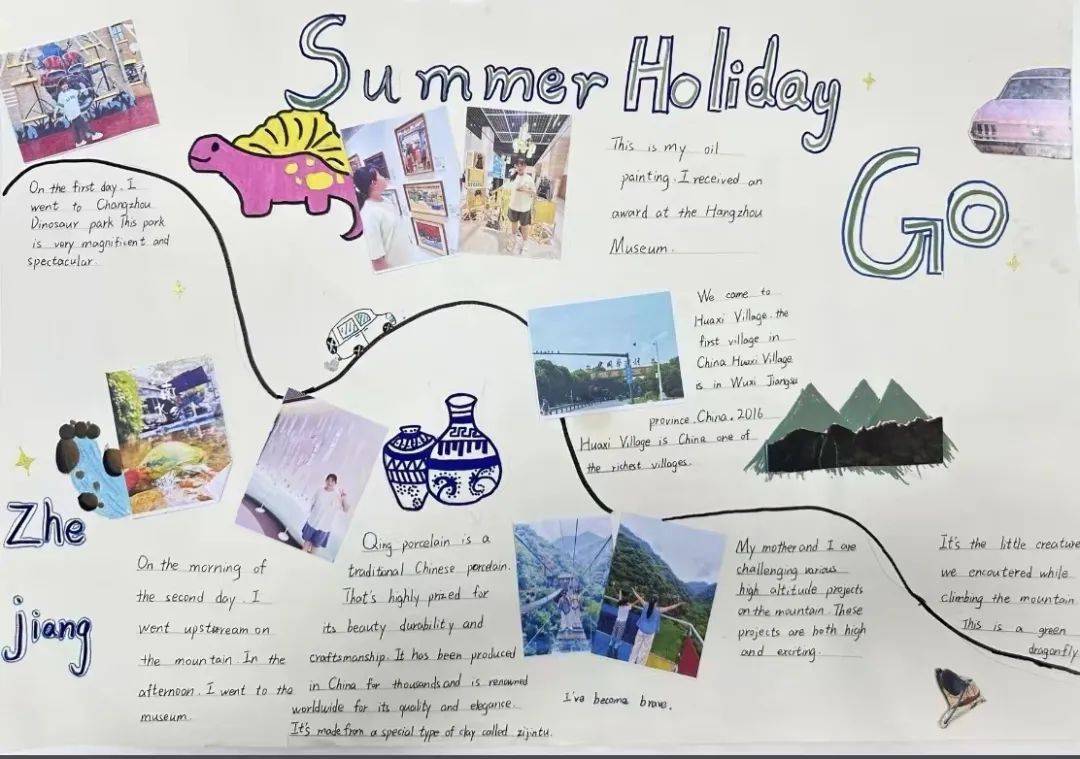 Summer Holiday
Go
On the first day. I
went to Changzhou
Dinosaur park This park
is very magnifient and
spectacular.
This is my oil
painting. I received an
award at the Hangzhou
Museum.
We came to
Huaxi Village. the
first village in
China Huaxi Village
is in Wuxi Jiangsu
province. China. 2016
Huaxi Village is China one of
the richest villages.
Zhe
jiang
On the morning of
the second day. I
went upstream on
the mountain. In the
afternoon. I went to the
museum.
Qing porcelain is a
traditional Chinese porcelain.
That's highly prized for
its beauty durability and
craftsmanship. It has been produced
in China for thousands and is renowned
worldwide for its quality and elegance.
It's made from a special type of clay called zijintu.
I've become brave.
My mother and I are
challenging various
high altitude projects
on the mountain. These
projects are both high
and exciting.
It's the little creature
we encoutered while
climbing the mountain
This is a green
dragonfly